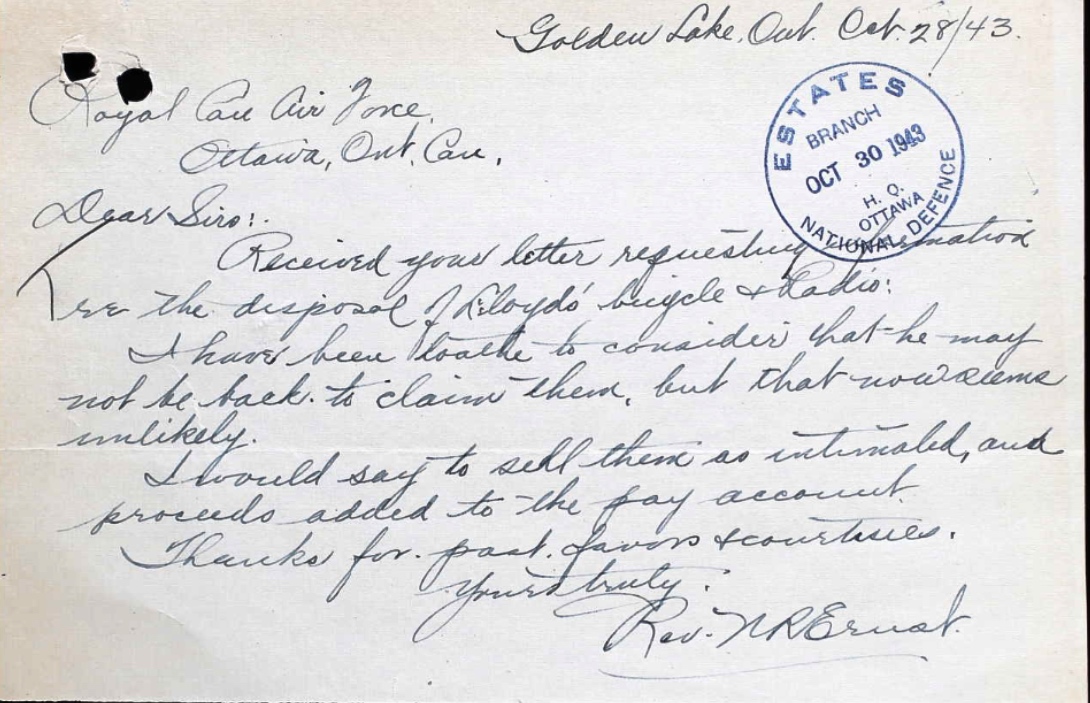 Golden Lake, Ont. Oct. 28/43.
Royal Can Air Force,
Ottawa, Ont. Can.
ESTATES
BRANCH
OCT 30 1943
H. Q.
OTTAWA
NATIONAL DEFENCE
Dear Sirs:
Received your letter requesting information
re the disposal of Lloyds' bicycle & Radio:
I have been loathe to consider that he may
not be back to claim them, but that now seems
unlikely.
I would say to sell them as intimated, and
proceeds added to the pay account.
Thanks for past favors & courtesies.
Yours truly.
Rev. N R Ernst.